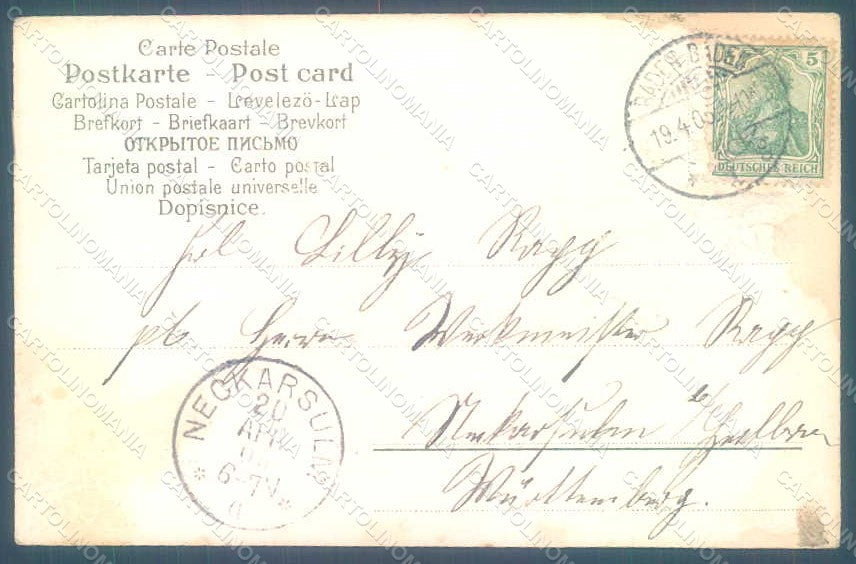 Carte Postale
Postkarte – Post card
Cartolina Postale – Levelezö-Lap
Brefkort – Briefkaart – Brevkort
ОТКРЫТОЕ ПИСЬМО
Tarjeta postal – Carto postal
Union postale universelle
Dopisnice.
BADEN-BADEN
19.4.05
5
DEUTSCHES REICH
Frl. Lilly Rapp
Herrn Werkmeister Rapp
Neckarsulm b/ Heilbronn
Württemberg.
NECKARSULM
20
APR
6-7N.
CARTOLINOMANIA